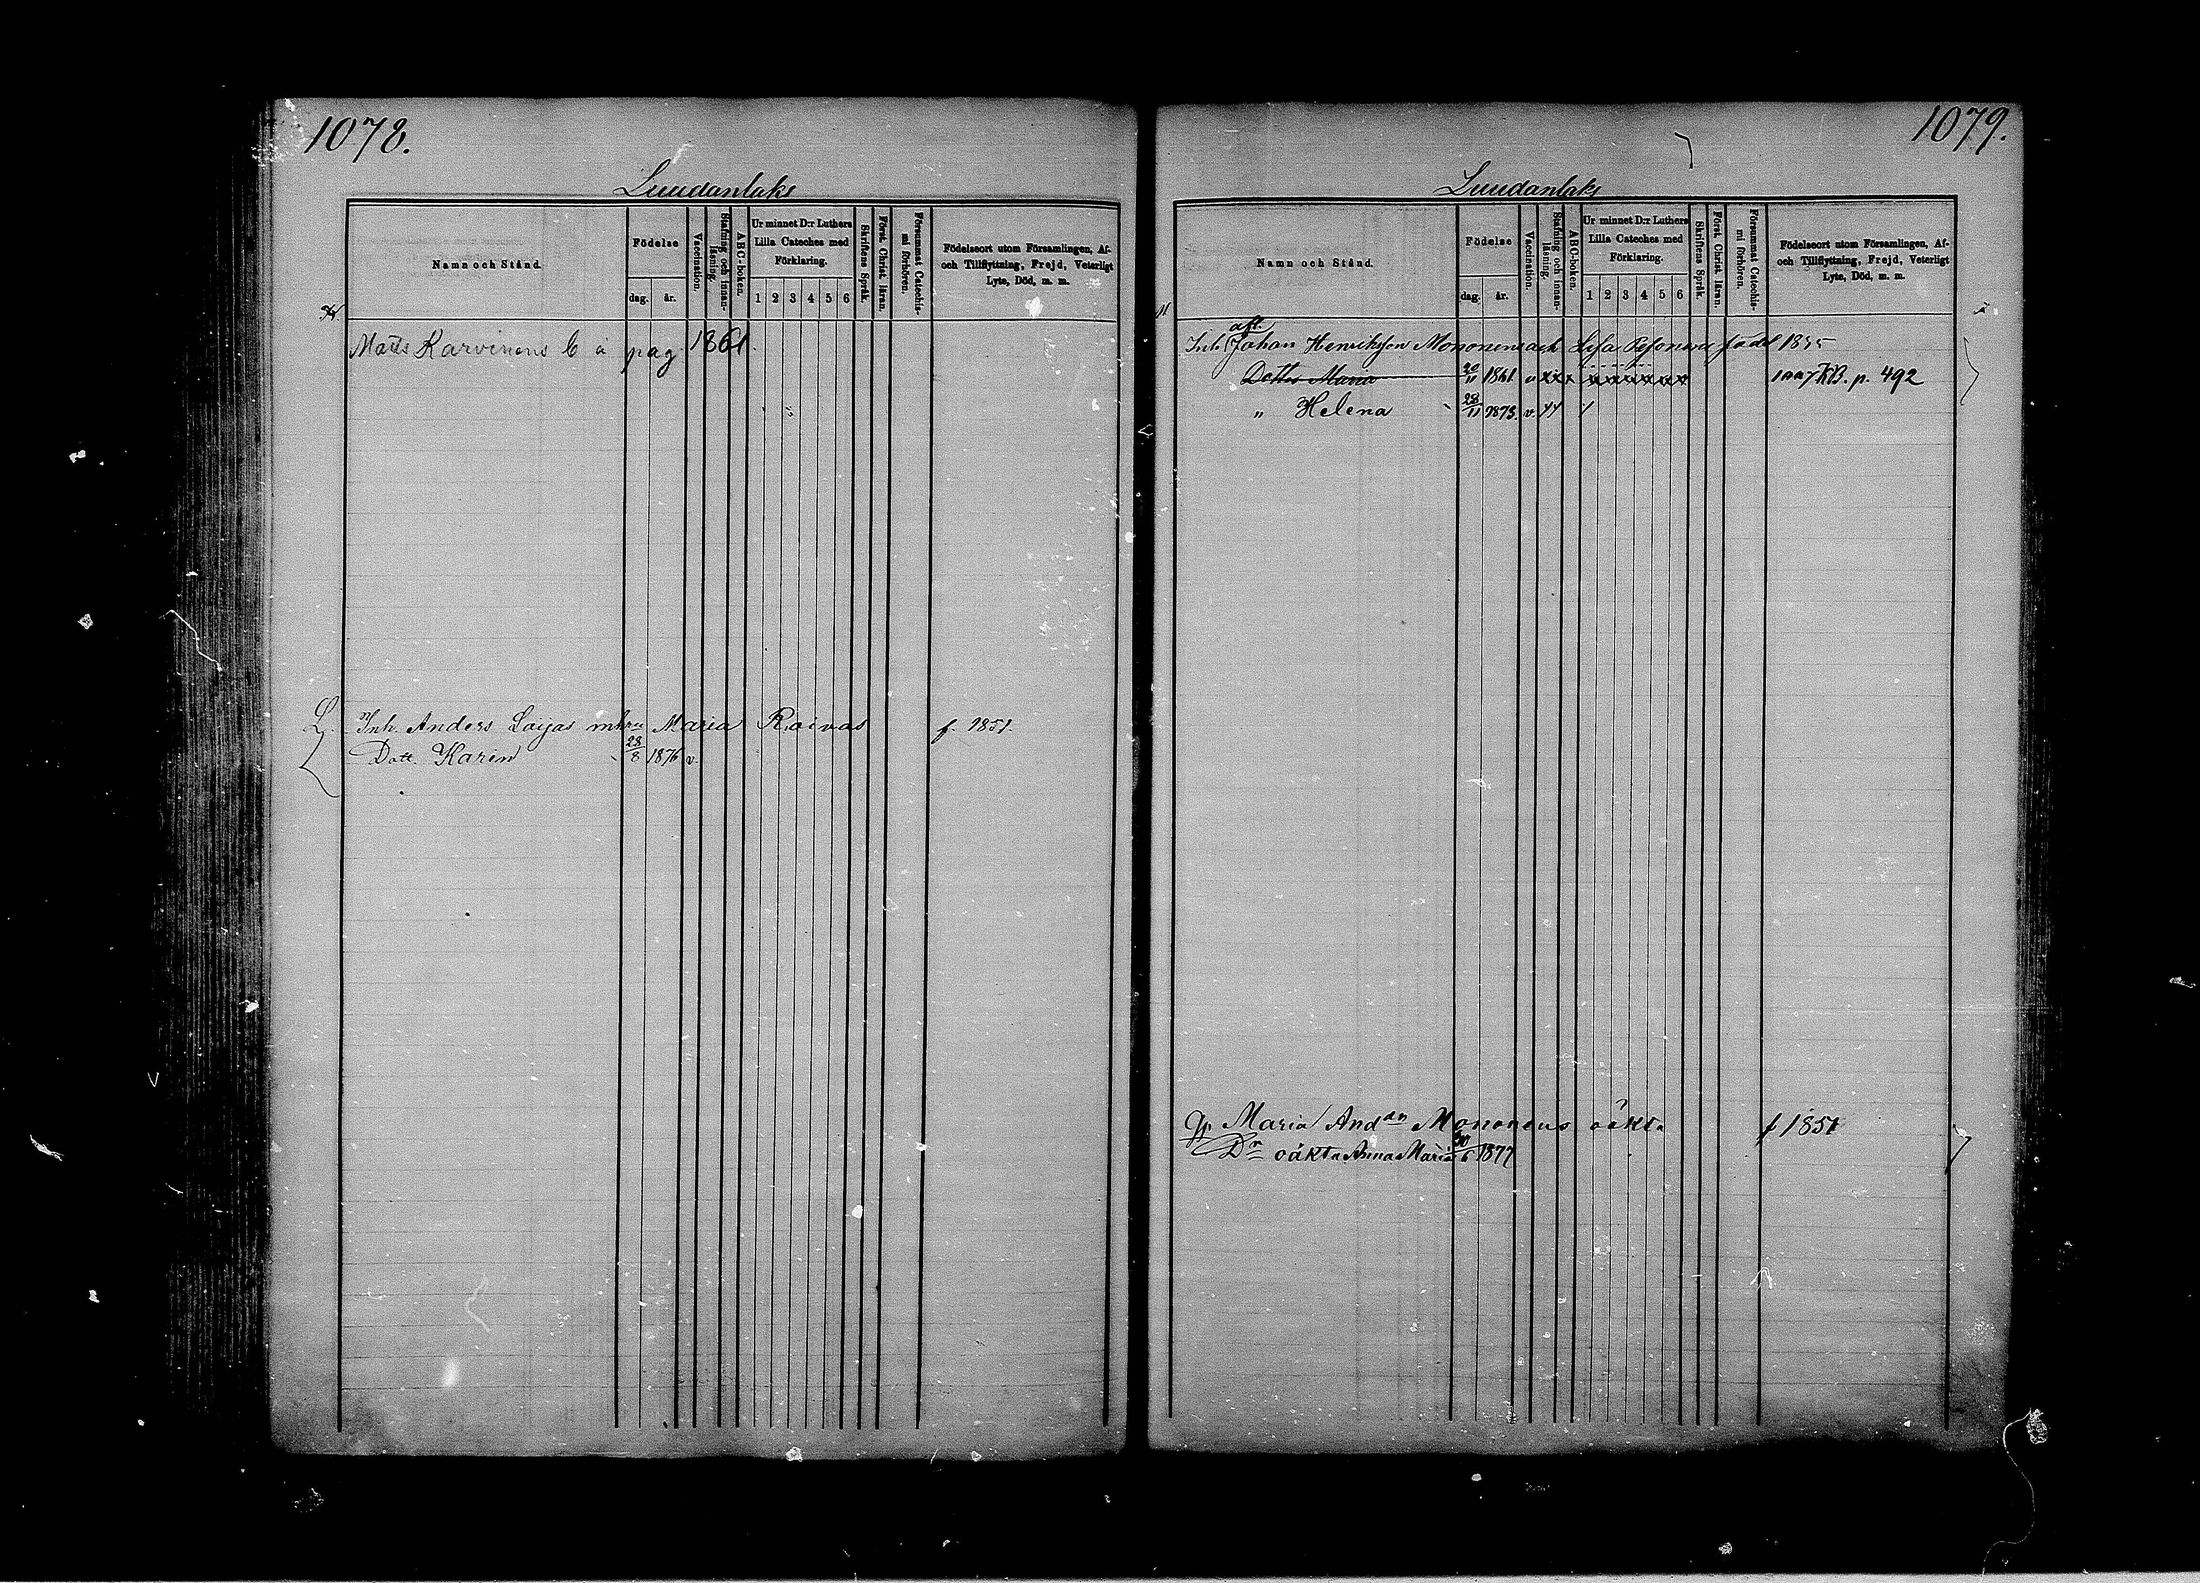 1078.
Luudanlaks
Namn och Stånd.
Födelse
dag. år.
Vaccination.
Stafning och innan-läsning.
ABC-boken.
Ur minnet D:r Luthers Lilla Cateches med Förklaring.
1 2 3 4 5 6
Skriftens Språk.
Först. Christ. läran.
Försummat Catechis-mi förhören.
Födelseort utom Församlingen, Af-
och Tillflyttning, Frejd, Veterligt
Lyte, Död, m. m.
Matts Karvinens C à pag. 1861.
Inh. Anders Laijas mhru Maria Raivas f. 1851.
Dott. Karin 28/8 1876 v.
1079.
Luudanlaks
Namn och Stånd.
Födelse
dag. år.
Vaccination.
Stafning och innan-läsning.
ABC-boken.
Ur minnet D:r Luthers Lilla Cateches med Förklaring.
1 2 3 4 5 6
Skriftens Språk.
Först. Christ. läran.
Försummat Catechis-mi förhören.
Födelseort utom Församlingen, Af-
och Tillflyttning, Frejd, Veterligt
Lyte, Död, m. m.
afl.
Inh. Johan Henriksson Mononens född 1835
Dotter Maria 20/11 1861 v xxx xxxxxx KB. p. 492
" Helena 28/11 1873. v.
Maria And:dn Mononens oäkta f 1851
Dr oäkta Anna Maria 30/6 1877